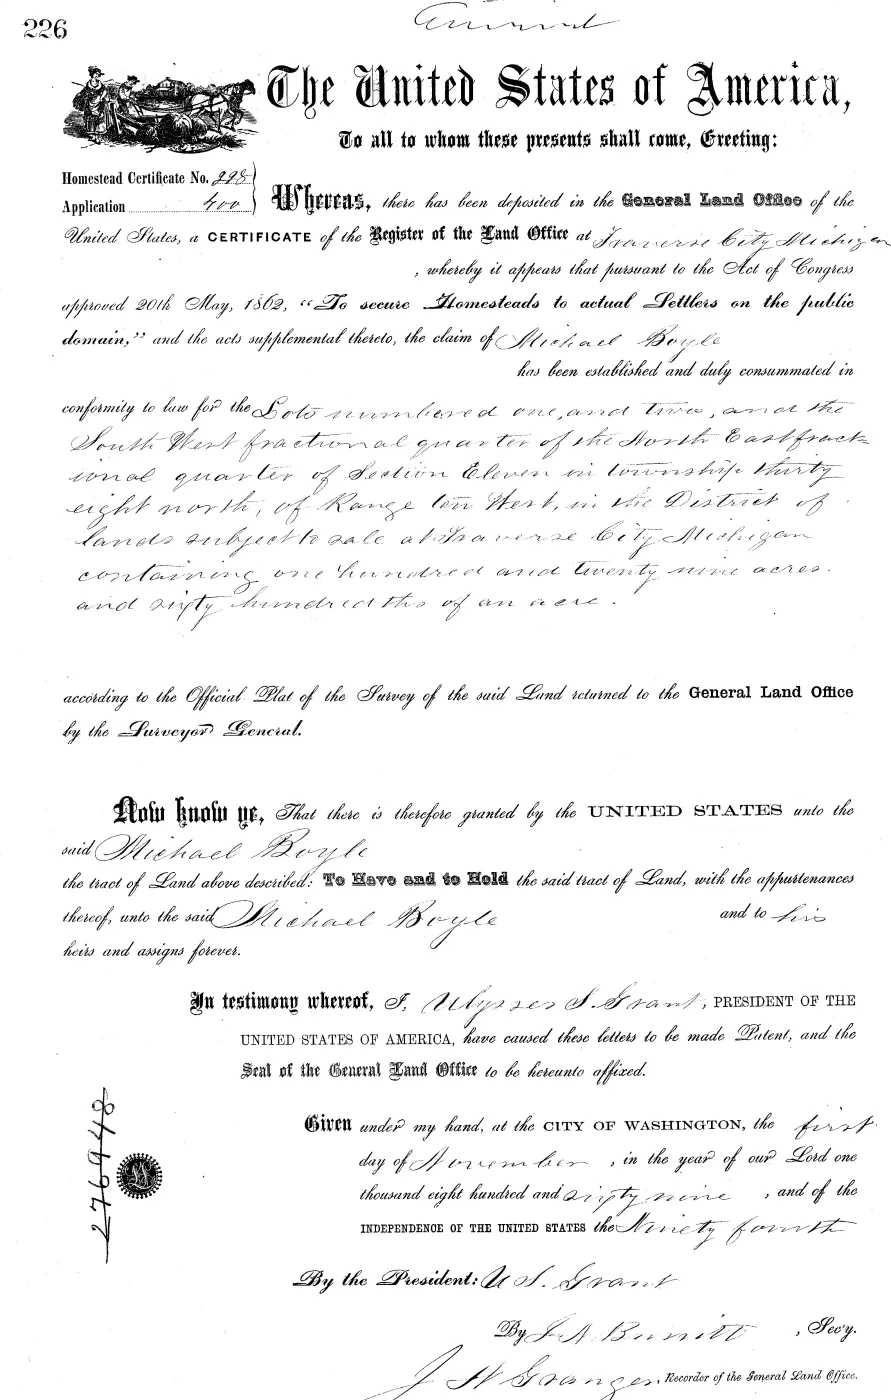 226
The United States of America,
To all to whom these presents shall come, Greeting:
Homestead Certificate No. 298
Application 400
Whereas, there has been deposited in the General Land Office of the
United States, a CERTIFICATE of the Register of the Land Office at Traverse City Michigan
, whereby it appears that pursuant to the Act of Congress
approved 20th May, 1862, "To secure Homesteads to actual Settlers on the public
domain," and the acts supplemental thereto, the claim of Michael Boyle
has been established and duly consummated in
conformity to law for the Lots numbered one, and two, and the
South West fractional quarter of the North East fract-
ional quarter of Section Eleven in township thirty
eight north, of Range ten West, in the District of
lands subject to sale at Traverse City Michigan
containing one hundred and twenty nine acres
and sixty hundredths of an acre.
according to the Official Plat of the Survey of the said Land returned to the General Land Office
by the Surveyor General.
Now know ye, That there is therefore granted by the UNITED STATES unto the
said Michael Boyle
the tract of Land above described: To Have and to Hold the said tract of Land, with the appurtenances
thereof, unto the said Michael Boyle and to his
heirs and assigns forever.
In testimony whereof, I, Ulysses S. Grant, PRESIDENT OF THE
UNITED STATES OF AMERICA, have caused these letters to be made Patent, and the
Seal of the General Land Office to be hereunto affixed.
Given under my hand, at the CITY OF WASHINGTON, the first
day of November, in the year of our Lord one
thousand eight hundred and sixty nine, and of the
INDEPENDENCE OF THE UNITED STATES the Ninety fourth
276948
By the President: U S. Grant
By , Sec'y.
J N Granger, Recorder of the General Land Office.